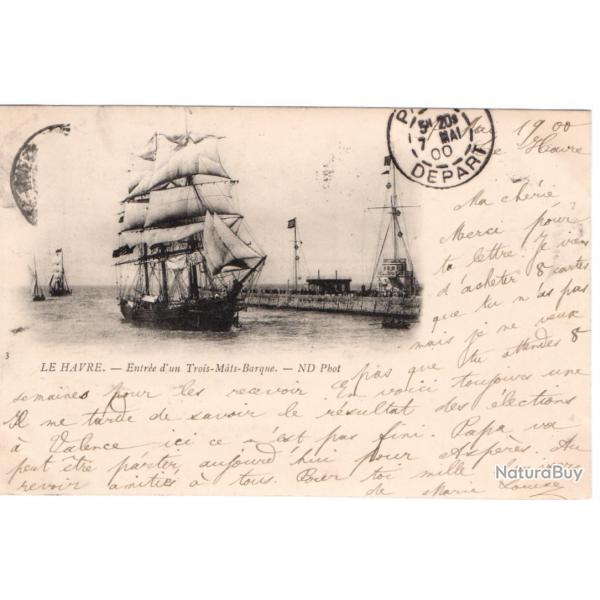 5H 20S
7 MAI
00
DEPART
Mai 1900
Le Havre
Ma chérie
Merci pour
ta lettre. Je viens
d'acheter 8 cartes
que tu n'as pas
mais je ne veux
3
LE HAVRE. — Entrée d'un Trois-Mâts-Barque. — ND Phot
pas que tu attendes 8
semaines pour les recevoir En voici toujours une
Il me tarde de savoir le résultat des élections
à Valence ici ce n'est pas fini. Papa va
peut être partir aujourd'hui pour Aspères. Au
revoir amitiés à tous. Pour toi mille
de Marie Louise
NaturaBuy